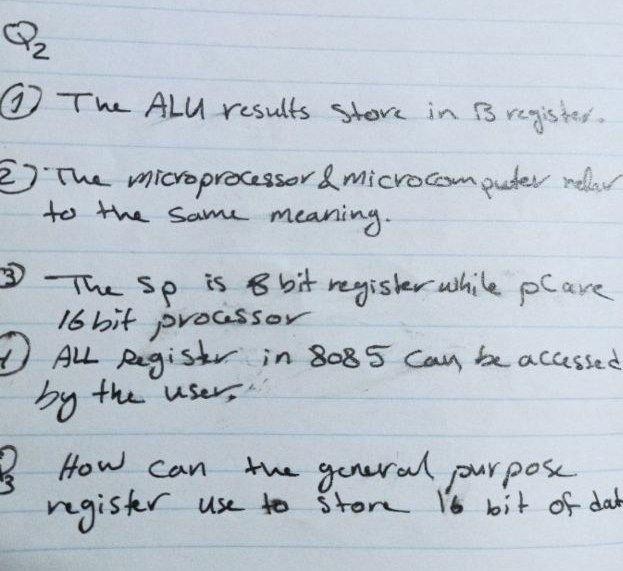 Q2
① The ALU results store in B register.
② The microprocessor & microcomputer refer
to the same meaning.
③ The Sp is 8 bit register while pC are
16 bit processor
ALL Register in 8085 can be accessed
by the user.
How can the general purpose
register use to store 16 bit of dat